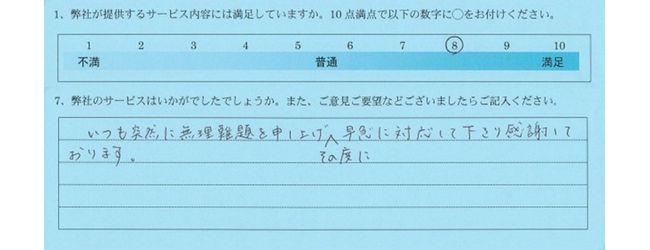 1、弊社が提供するサービス内容には満足していますか。10点満点で以下の数字に○をお付けください。
1 2 3 4 5 6 7 8 9 10
不満 普通 満足
7、弊社のサービスはいかがでしたでしょうか。また、ご意見ご要望などございましたらご記入ください。
いつも突然に無理難題を申し上げ早急に対応して下さり感謝して
その度に
おります。